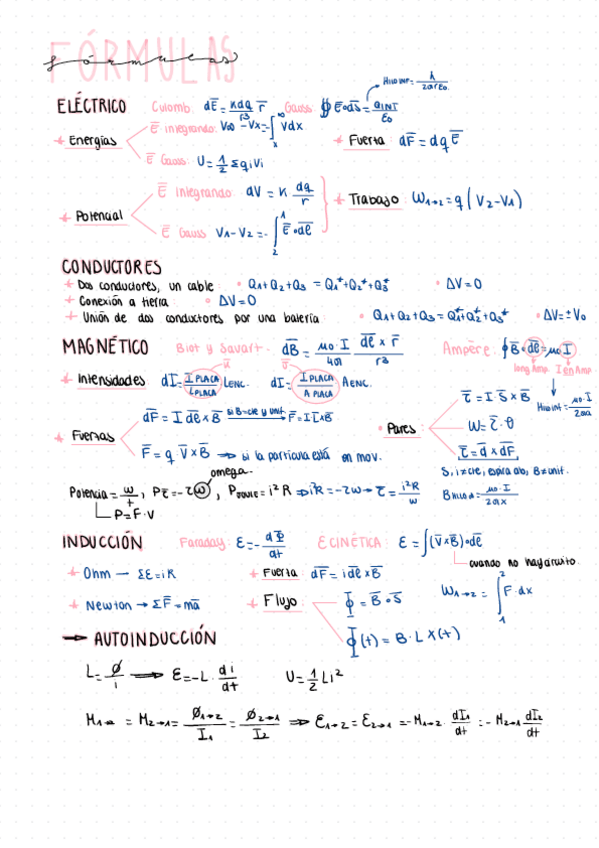 FÓRMULAS
fórmulas
Hilo inf = λ/2πrε₀
ELÉCTRICO Culomb: dE̅ = Kdq/r³ r̅ Gauss: ∯ E̅∘ds̅ = qINT/ε₀
+ Energías E̅ integrando: V∞ - Vx = -∫ₓ^∞ Vdx + Fuerta dF̅ = dq E̅
E̅ Gauss: U = 1/2 Σqᵢvᵢ
+ Potencial E̅ integrando: dV = K dq/r + Trabajo: W₁→₂ = q(V₂-V₁)
E̅ Gauss V₁-V₂ = -∫₂¹ E̅∘dl̅
CONDUCTORES
+ Dos conductores, un cable: • Q₁+Q₂+Q₃ = Q₁*+Q₂*+Q₃* • ΔV=0
+ Conexión a tierra: • ΔV=0
+ Unión de dos conductores por una batería: • Q₁+Q₂+Q₃ = Q₁*+Q₂*+Q₃* • ΔV=±V₀
MAGNÉTICO Biot y Savart: dB̅ = μ₀·I/4π dl̅ x r̅/r³ Ampère: ∮B̅∘dl̅ = μ₀I
long Amp. I en Amp
+ Intensidades: dI = I PLACA/L PLACA LENC. dI = I PLACA/A PLACA AENC.
Hilo inf = μ₀·I/2πa
+ Fuerzas dF̅ = I dl̅ x B̅ si B=cte y unif. F̅ = I L̅ x B̅
F̅ = q·V̅ x B̅ → si la partícula está en mov.
• Pares: τ̅ = I·S̅ x B̅
W = τ̅·θ
τ̅ = d̅ x dF̅
S, i≠cre, espira ab, B≠unif.
omega.
Potencia = w/t, Pτ = -τω, PJOULE = i²R ⇒ i²R = -τω → τ = i²R/ω
P=F·V
B hilo ∞ = μ₀·I/2πx
INDUCCIÓN Faraday: ε = -dΦ/dt ECINÉTICA: ε = ∫(V̅xB̅)∘dl̅
cuando no hay circuito.
+ Ohm — Σε=iR + Fuerta: dF̅ = idl̅xB̅
+ Newton → ΣF̅=ma̅ + Flujo Φ = B̅∘S̅ W₁→₂ = ∫₁² F·dx
Φ(t) = B·L·X(t)
→ AUTOINDUCCIÓN
L = Ø/i → ε = -L·di/dt U = 1/2 Li²
M₁→₂ = M₂→₁ = Ø₁→₂/I₁ = Ø₂→₁/I₂ ⇒ ε₁→₂ = ε₂→₁ = -M₁→₂·dI₁/dt = -M₂→₁ dI₂/dt